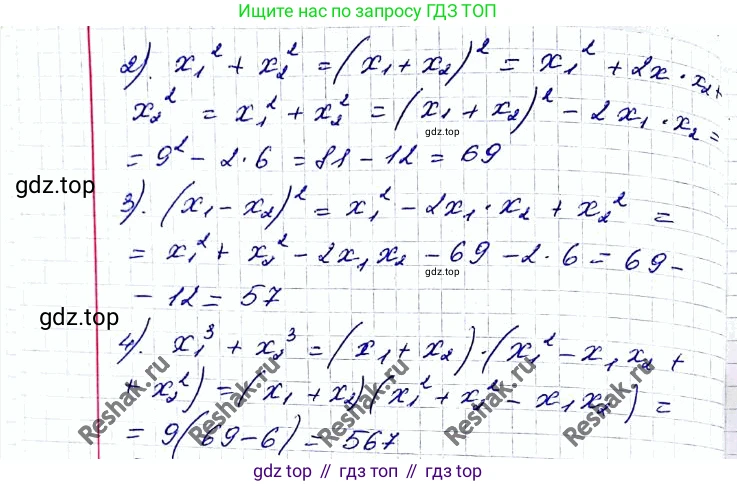 Ищите нас по запросу ГДЗ ТОП
2). x₁² + x₂² = (x₁ + x₂)² = x₁² + 2x · x₂ +
x₂² = x₁² + x₂² = (x₁ + x₂)² − 2x₁ · x₂ =
gdz.top
= 9² − 2·6 = 81 − 12 = 69
gdz.top
3). (x₁ − x₂)² = x₁² − 2x₁ · x₂ + x₂² =
= x₁² + x₂² − 2x₁x₂ − 69 − 2·6 = 69 −
gdz.top
− 12 = 57
4). x₁³ + x₂³ = (x₁ + x₂) · (x₁² − x₁x₂ +
+ x₂²) = (x₁ + x₂)(x₁² + x₂² − x₁x₂) =
= 9(69−6) = 567
Reshak.ru
Reshak.ru
Reshak.ru
gdz top // гдз топ // gdz.top